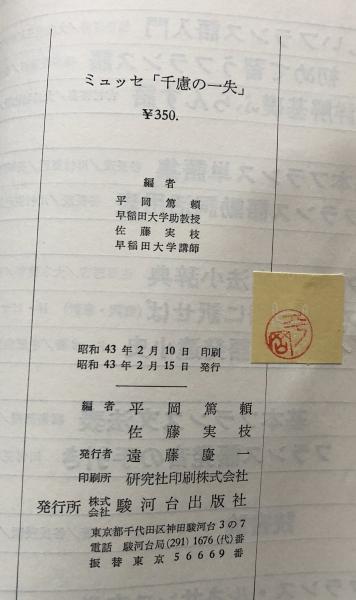 ミュッセ「千慮の一失」
¥350.
編者
平岡篤頼
早稲田大学助教授
佐藤実枝
早稲田大学講師
昭和43年2月10日 印刷
昭和43年2月15日 発行
編者 平岡篤頼
佐藤実枝
発行者 遠藤慶一
印刷所 研究社印刷株式会社
発行所 株式会社 駿河台出版社
東京都千代田区神田駿河台3の7
電話 駿河台局(291)1676(代)番
振替東京56669番